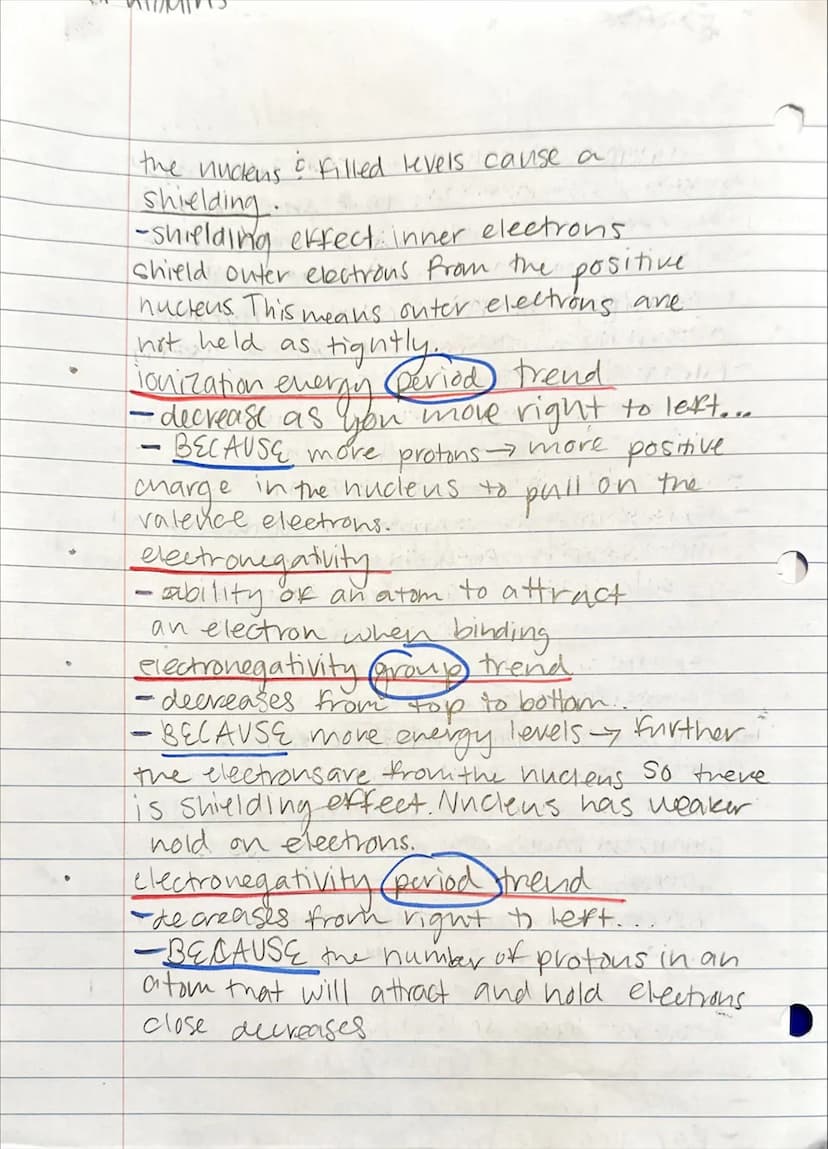 the nucleus & filled levels cause a
shielding.
-shielding effect: inner electrons
shield outer electrons from the positive
nucleus. This means outer electrons are
not held as tightly.
ionization energy period trend
- decrease as you move right to left...
- BECAUSE more protons → more positive
charge in the nucleus to pull on the
valence electrons.
electronegativity
- ability of an atom to attract
an electron when binding
electronegativity group trend
- decreases from top to bottom..
- BECAUSE more energy levels → further
the electrons are from the nucleus so there
is shielding effect. Nucleus has weaker
hold on electrons.
electronegativity period trend
- decreases from right to left...
- BECAUSE the number of protons in an
atom that will attract and hold electrons
close decreases